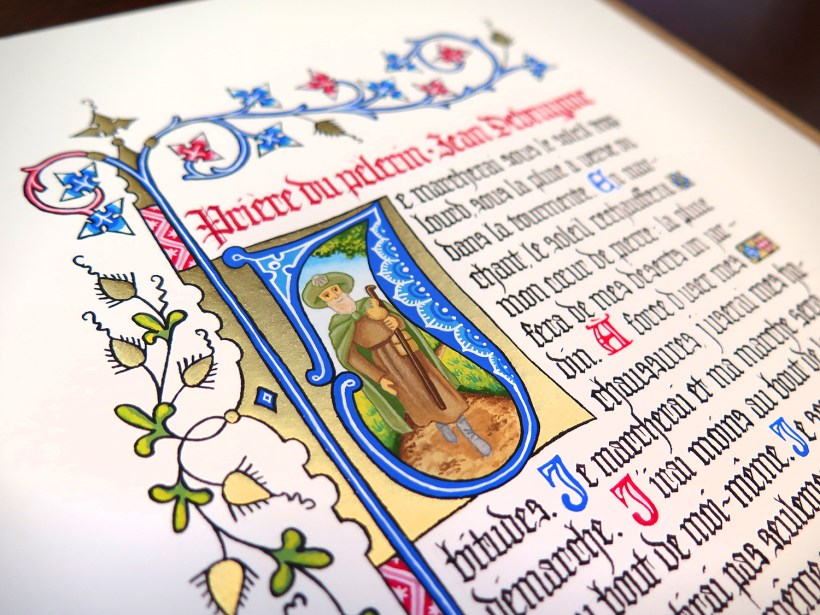 Prière du pelerin · Jean Debruyne
Je marcherai sous le soleil trop
lourd, sous la pluie à verse ou
dans la tourmente. En mar-
chant, le soleil rechauffera
mon cœur de pierre; la pluie
fera de mes deserts un jar-
din. A force d'user mes
chaussures, j'userai mes ha-
bitudes. Je marcherai et ma marche sera
démarche. J'irai moins au bout de
au bout de moi-même. Je se
irai pas seulem
même